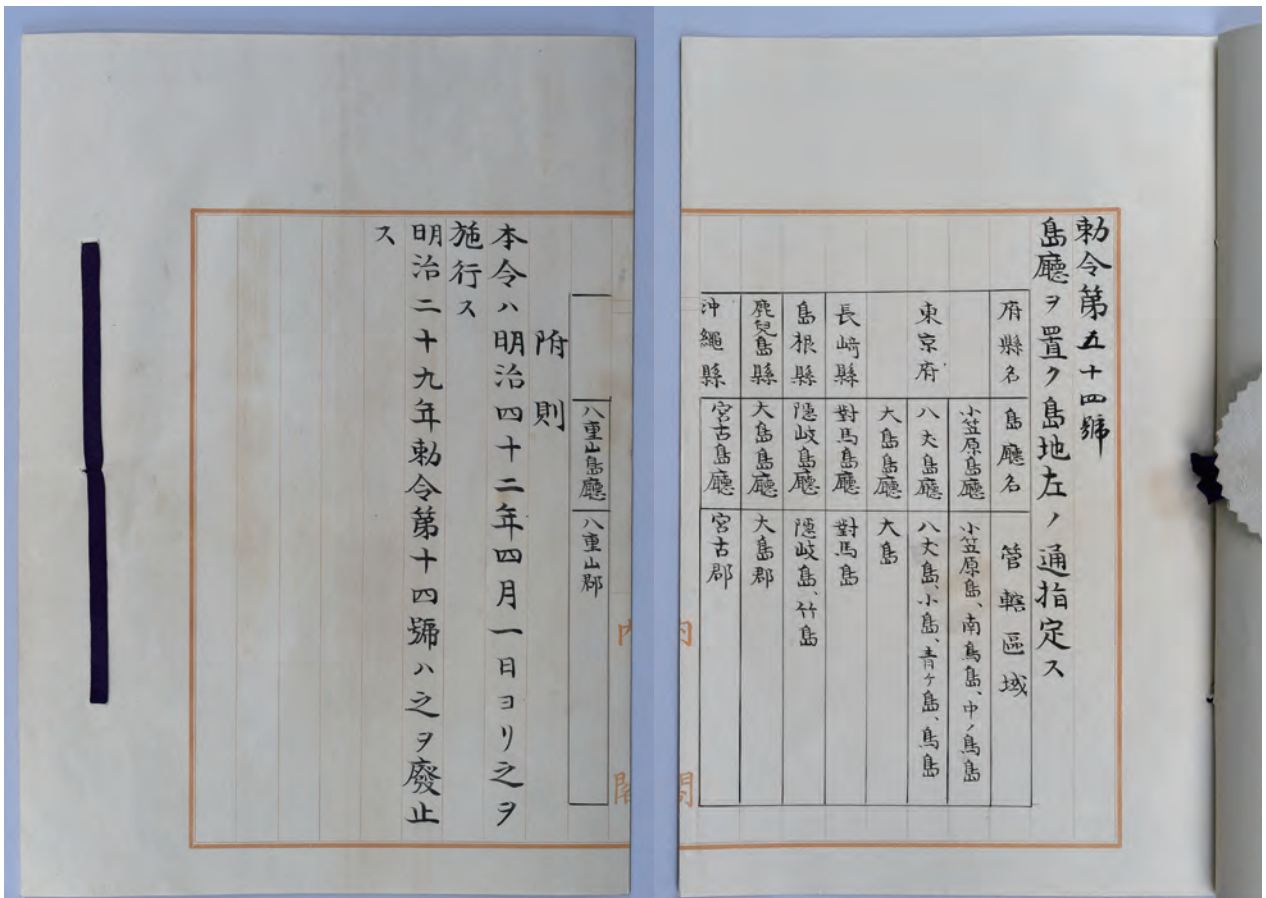 勅令第五十四號
島廳ヲ置ク島地左ノ通指定ス
府縣名 島廳名 管轄區域
小笠原島廳 小笠原島、南鳥島、中ノ鳥島
東京府 八丈島廳 八丈島、小島、青ケ島、鳥島
大島島廳 大島
長崎縣 對馬島廳 對馬島
島根縣 隱岐島廳 隱岐島、竹島
鹿兒島縣 大島島廳 大島郡
沖繩縣 宮古島廳 宮古郡
內閣
八重山島廳 八重山郡
附則
本令ハ明治四十二年四月一日ヨリ之ヲ
施行ス
明治二十九年勅令第十四號ハ之ヲ廢止
ス